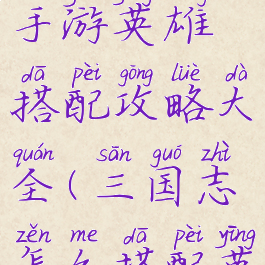 手游英雄
dā pèi gōng lüè dà
搭配攻略大
quán sān guó zhì
全(三国志
zěn me dā pèi yīng
怎么搭配英